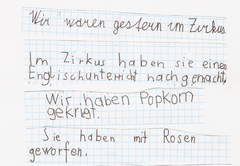 Wir waren gestern im Zirkus
Im Zirkus haben sie einen
Englischunterricht nachgemacht.
Wir haben Popkorn
gekrigt.
Sie haben mit Rosen
geworfen.